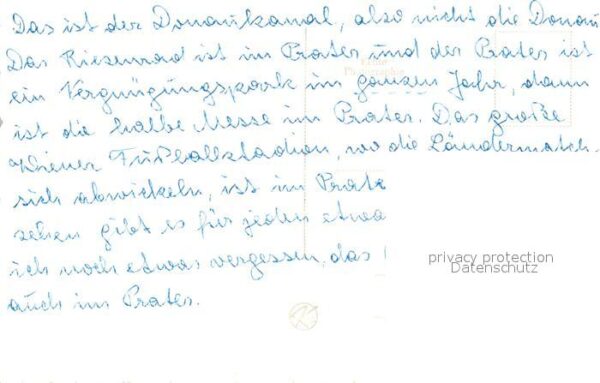 Das ist der Donaukanal, also nicht die Donau
Das Riesenrad ist im Prater und der Prater ist
ein Vergnügungspark im ganzen Jahr, dann
ist die halbe Messe im Prater. Das große
Wiener Fußballstadion, wo die Ländermatch.
sich abwickeln, ist im Prate
sehen gibt es für jeden etwa
ich noch etwas vergessen, das
auch im Prater.
privacy protection
Datenschutz